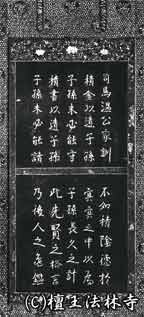 司馬温公家訓
積金以遺子孫
子孫未必能守
積書以遺子孫
子孫未必能讀
不如積陰德於
冥冥之中以為
子孫長久之計
此先賢之格言
乃後人之亀鑑
(C)檀王法林寺